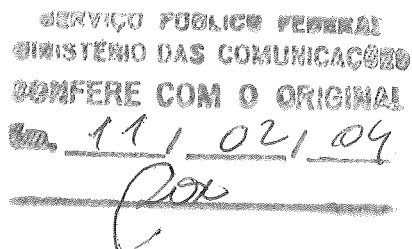 SERVIÇO PÚBLICO FEDERAL
MINISTÉRIO DAS COMUNICAÇÕES
CONFERE COM O ORIGINAL
Em, 11, 02, 04